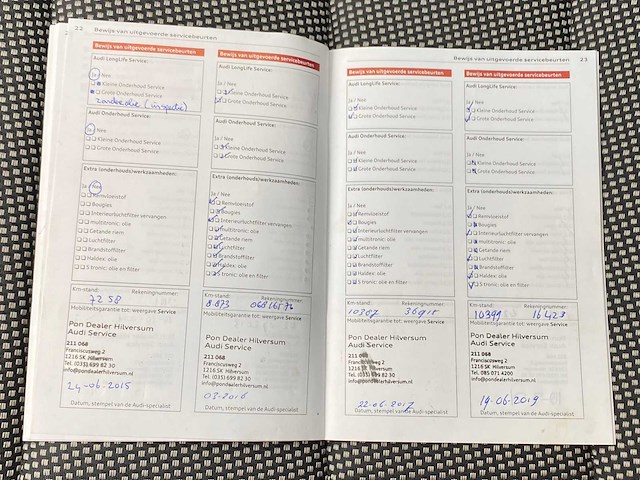 22
Bewijs van uitgevoerde servicebeurten
Bewijs van uitgevoerde servicebeurten
Audi LongLife Service:
Ja / Nee
Kleine Onderhoud Service
Grote Onderhoud Service
zonder olie (inspectie)
Audi Onderhoud Service:
Ja / Nee
Kleine Onderhoud Service
Grote Onderhoud Service
Extra (onderhouds)werkzaamheden:
Ja / Nee
Remvloeistof
Bougies
Interieurluchtfilter vervangen
multitronic: olie
Getande riem
Luchtfilter
Brandstoffilter
Haldex: olie
S tronic: olie en filter
Km-stand: Rekeningnummer:
7258
Mobiliteitsgarantie tot: weergave Service
Pon Dealer Hilversum
Audi Service
211 068
Franciscusweg 2
1216 SK Hilversum
Tel. (035) 699 82 30
info@pondealerhilversum.nl
24-06-2015
Datum, stempel van de Audi-specialist
Bewijs van uitgevoerde servicebeurten
Audi LongLife Service:
Ja / Nee
Kleine Onderhoud Service
Grote Onderhoud Service
Audi Onderhoud Service:
Ja / Nee
Kleine Onderhoud Service
Grote Onderhoud Service
Extra (onderhouds)werkzaamheden:
Ja / Nee
Remvloeistof
Bougies
Interieurluchtfilter vervangen
multitronic: olie
Getande riem
Luchtfilter
Brandstoffilter
Haldex: olie
S tronic: olie en filter
Km-stand: Rekeningnummer:
8.873
Mobiliteitsgarantie tot: weergave Service
Pon Dealer Hilversum
Audi Service
211 068
Franciscusweg 2
1216 SK Hilversum
Tel. (035) 699 82 30
info@pondealerhilversum.nl
03-2016
Datum, stempel van de Audi-specialist
Bewijs van uitgevoerde servicebeurten
23
Bewijs van uitgevoerde servicebeurten
Audi LongLife Service:
Ja / Nee
Kleine Onderhoud Service
Grote Onderhoud Service
Audi Onderhoud Service:
Ja / Nee
Kleine Onderhoud Service
Grote Onderhoud Service
Extra (onderhouds)werkzaamheden:
Ja / Nee
Remvloeistof
Bougies
Interieurluchtfilter vervangen
multitronic: olie
Getande riem
Luchtfilter
Brandstoffilter
Haldex: olie
S tronic: olie en filter
Km-stand: Rekeningnummer:
10307
Mobiliteitsgarantie tot: weergave Service
Pon Dealer Hilversum
Audi Service
211 068
Franciscusweg 2
1216 SK Hilversum
Tel. (035) 699 82 30
info@pondealerhilversum.nl
22-06-2017
Datum, stempel van de Audi-specialist
Bewijs van uitgevoerde servicebeurten
Audi LongLife Service:
Ja / Nee
Kleine Onderhoud Service
Grote Onderhoud Service
Audi Onderhoud Service:
Ja / Nee
Kleine Onderhoud Service
Grote Onderhoud Service
Extra (onderhouds)werkzaamheden:
Ja / Nee
Remvloeistof
Bougies
Interieurluchtfilter vervangen
multitronic: olie
Getande riem
Luchtfilter
Brandstoffilter
Haldex: olie
S tronic: olie en filter
Km-stand: Rekeningnummer:
10399 16423
Mobiliteitsgarantie tot: weergave Service
Pon Dealer Hilversum
Audi Service
211 068
Franciscusweg 2
1216 SK Hilversum
Tel. 085 071 4200
info@pondealerhilversum.nl
19-06-2019
Datum, stempel van de Audi-specialist